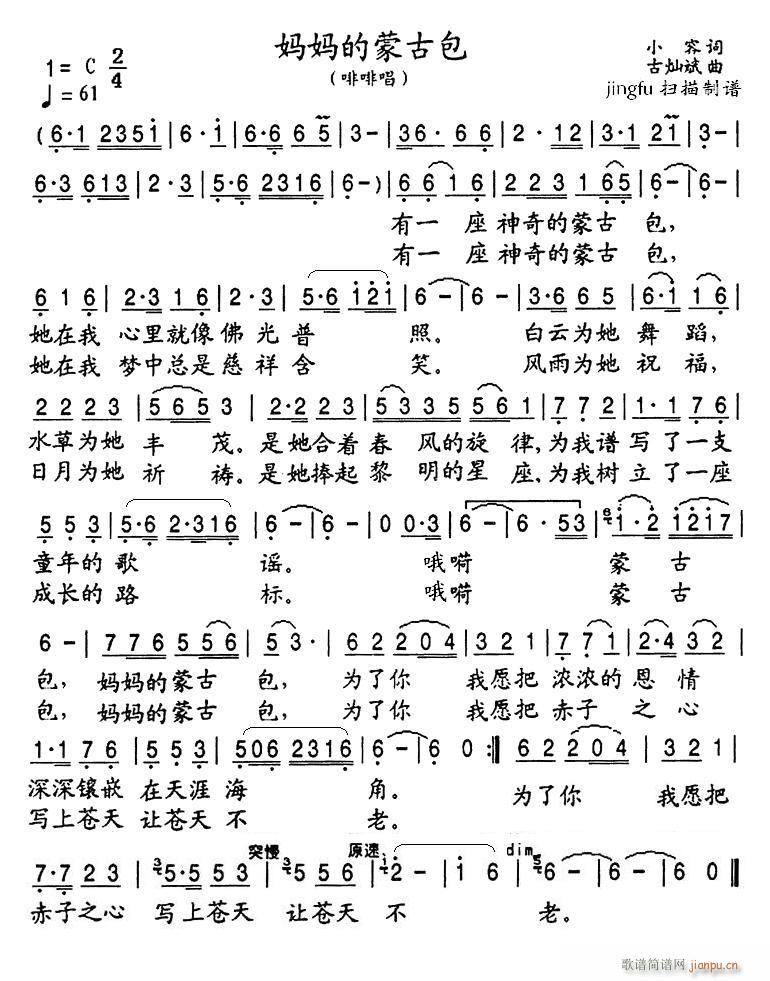 妈妈的蒙古包
（啡啡唱）
1= C 2/4
♩= 61
小 容 词
古灿斌 曲
jingfu 扫描制谱
( 6·1 2351 | 6·1 | 6·6 6 5 | 3 - | 36· 6 6 | 2· 12 | 3·1 21 | 3 - |
6·3 613 | 2·3 | 5·6 2316 | 6 - ) | 6 6 1 6 | 2 2 3 1 65 | 6 - | 6 - |
有一 座 神奇的蒙古 包，
有一 座 神奇的蒙古 包，
6 1 6 | 2·3 1 6 | 2·3 | 5·6 121 | 6 - | 6 - | 3·6 6 5 | 6·1 1 6 |
她在我 心里就像佛光普 照。 白云为她 舞蹈，
她在我 梦中总是慈祥含 笑。 风雨为她 祝福，
2 2 2 3 | 5 6 5 3 | 2·2 2 3 | 5 3 3 5 5 6 1 | 7 7 2 | 1·1 7 6 |
水草为她 丰 茂。是她合着春 风的旋 律，为我谱写了一支
日月为她 祈 祷。是她捧起黎 明的星 座，为我树立了一座
5 5 3 | 5·6 2·316 | 6 - | 6 - | 0 0·3 | 6 - | 6· 53 | 1·2 1217 |
童年的歌 谣。 哦嗬 蒙 古
成长的路 标。 哦嗬 蒙 古
6 - | 7 7 6 5 5 6 | 5 3· | 6 2 2 0 4 | 3 2 1 | 7 7 1 | 2·4 3 2 |
包， 妈妈的蒙古 包， 为了你 我愿把 浓浓的恩 情
包， 妈妈的蒙古 包， 为了你 我愿把 赤子 之心
1·1 7 6 | 5 5 5 | 506 2316 | 6 - | 6 0 :‖ 6 2 2 0 4 | 3 2 1 |
深深镶嵌 在天涯海 角。 为了你 我愿把
写上苍天 让苍天不 老。
突慢 原速 dim
7·7 2 3 | 5·5 5 3 | 5·5 5 | 2 - | 1 6 | 6 - | 6 - | 6 0 ‖
赤子之心 写上苍天 让苍天 不 老。
歌谱简谱网
jianpu.cn